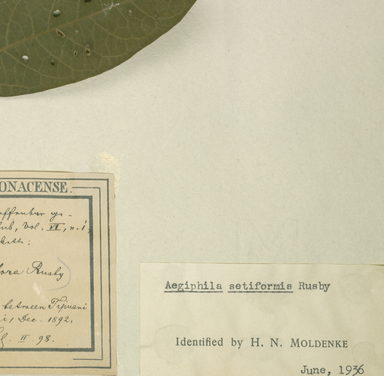 ONACENSE.
Vol. VI, n. 1,
Rusby
between Tipuani
Dec. 1892.
II 98.
Aegiphila setiformis Rusby
Identified by H. N. MOLDENKE
June, 1936